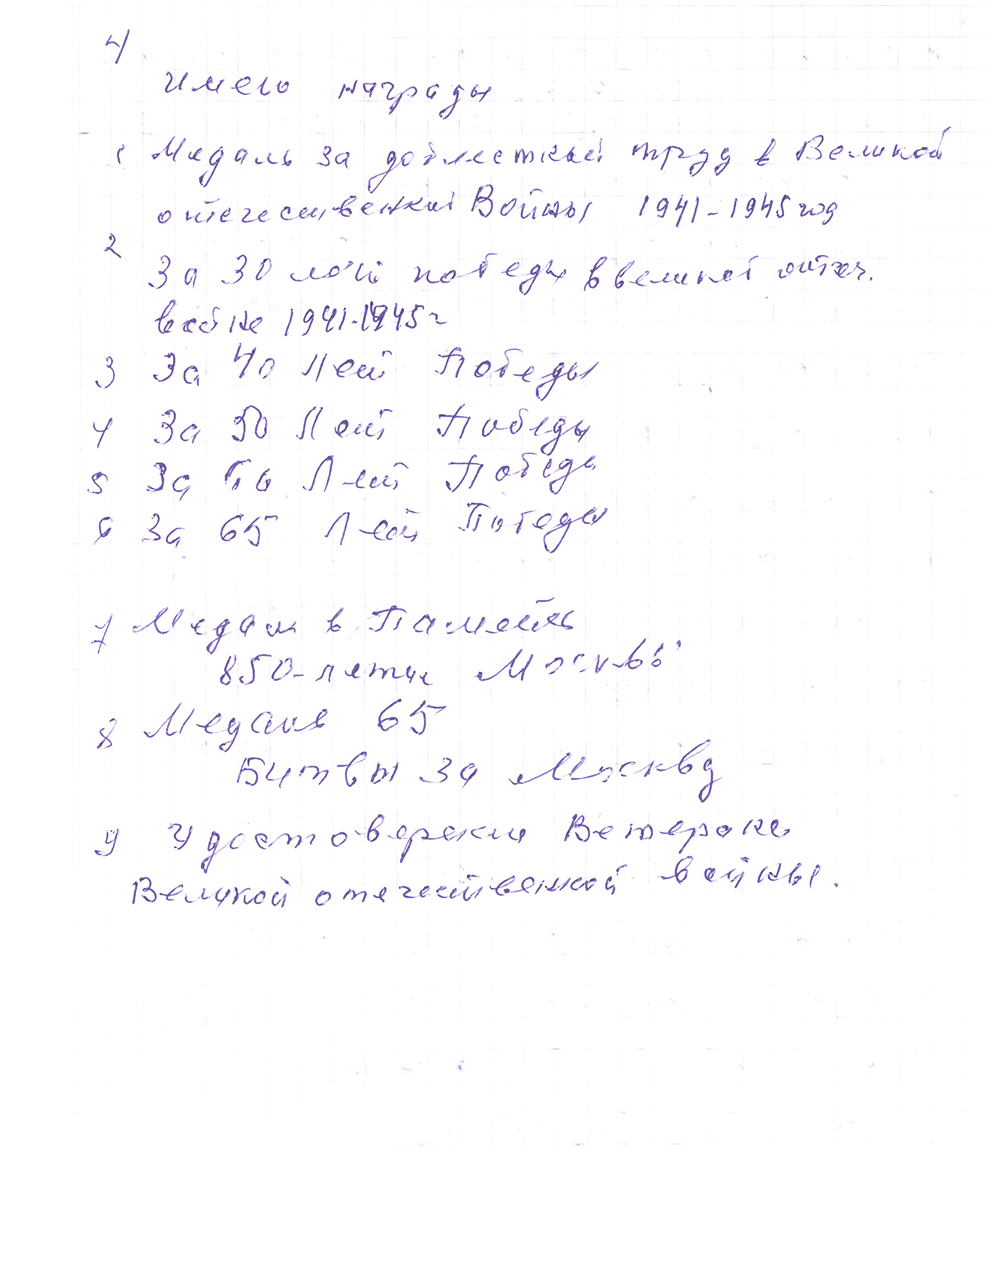 4
Имею награды
1 Медаль за доблестный труд в Великой
отечественной Войны 1941-1945 год
2
За 30 лет победы в великой отеч.
войне 1941-1945 г
3 За 40 Лет Победы
4 За 50 Лет Победы
5 За 60 Лет Победы
6 За 65 Лет Победы
7 Медаль в Память
850-летия Москвы
8 Медаль 65
Битвы за Москву
9 Удостоверение Ветерана
Великой отечественной войны.